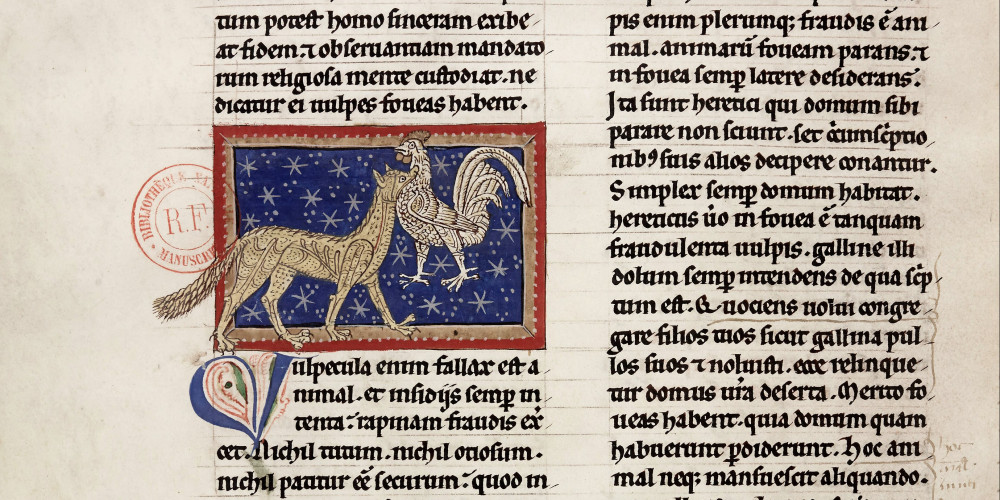 tum potest homo sinceram exibe
at fidem ⁊ obseruantiam mandato
rum religiosa mente custodiat. ne
dicatur ei uulpes foueas habent.
Vulpecula enim fallax est a
nimal. et insidijs semper in
tenta: rapinam fraudis ex̾
cet. Nichil tutum. nichil otiosum.
nichil patitur eē securum: quod in
pis enim plerumq; fraudis ē ani
mal. animarū foueam parans: ⁊
in fouea semꝑ latere desiderans.
Ita sunt heretici qui domum sibi
parare non sciunt. set c̾cumsc̾ptio
nibꝰ suis alios decipere conantur.
Simplex semꝑ domum habitat.
hereticus ůo in fouea ē tanquam
fraudulenta uulpis. galline illi
dolum semꝑ intendens de qua sc̾p
tum est. Quociens uolui congre
gare filios tuos sicut gallina pul
los suos ⁊ noluisti. ecce relinque
tur domus ůra deserta. Merito fo
ueas habent. quia domum quam
habuerunt ꝑdiderunt. Hoc ani
mal neq; mansuescit aliquando.
BIBLIOTHÈQUE NA
R.F.
MANUSCRI